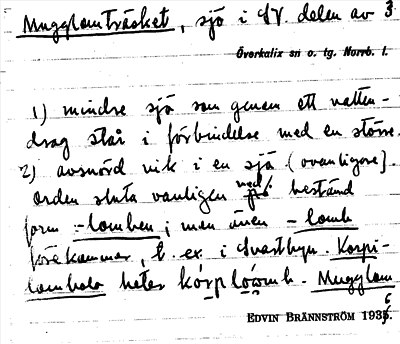 Mugglomträsket, sjö i SV. delen av 3
Överkalix sn o. tg. Norrb. l.
1) mindre sjö som genom ett vatten-
drag står i förbindelse med en större.
2) avsnörd vik i en sjö (ovanligare).
Orden sluta vanligen med bestämd
form -lomben; men även -lomb
förekommer, t. ex. i Svartbyn. Korpi-
lombolo heter kórplòwmb. Mugglom
6
EDVIN BRÄNNSTRÖM 193